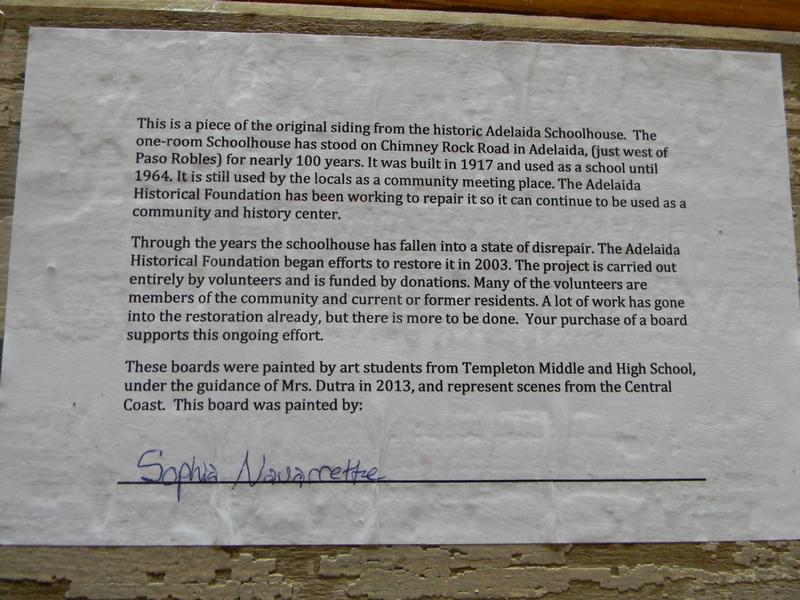 This is a piece of the original siding from the historic Adelaida Schoolhouse. The
one-room Schoolhouse has stood on Chimney Rock Road in Adelaida, (just west of
Paso Robles) for nearly 100 years. It was built in 1917 and used as a school until
1964. It is still used by the locals as a community meeting place. The Adelaida
Historical Foundation has been working to repair it so it can continue to be used as a
community and history center.
Through the years the schoolhouse has fallen into a state of disrepair. The Adelaida
Historical Foundation began efforts to restore it in 2003. The project is carried out
entirely by volunteers and is funded by donations. Many of the volunteers are
members of the community and current or former residents. A lot of work has gone
into the restoration already, but there is more to be done. Your purchase of a board
supports this ongoing effort.
These boards were painted by art students from Templeton Middle and High School,
under the guidance of Mrs. Dutra in 2013, and represent scenes from the Central
Coast. This board was painted by:
Sophia Navarrette